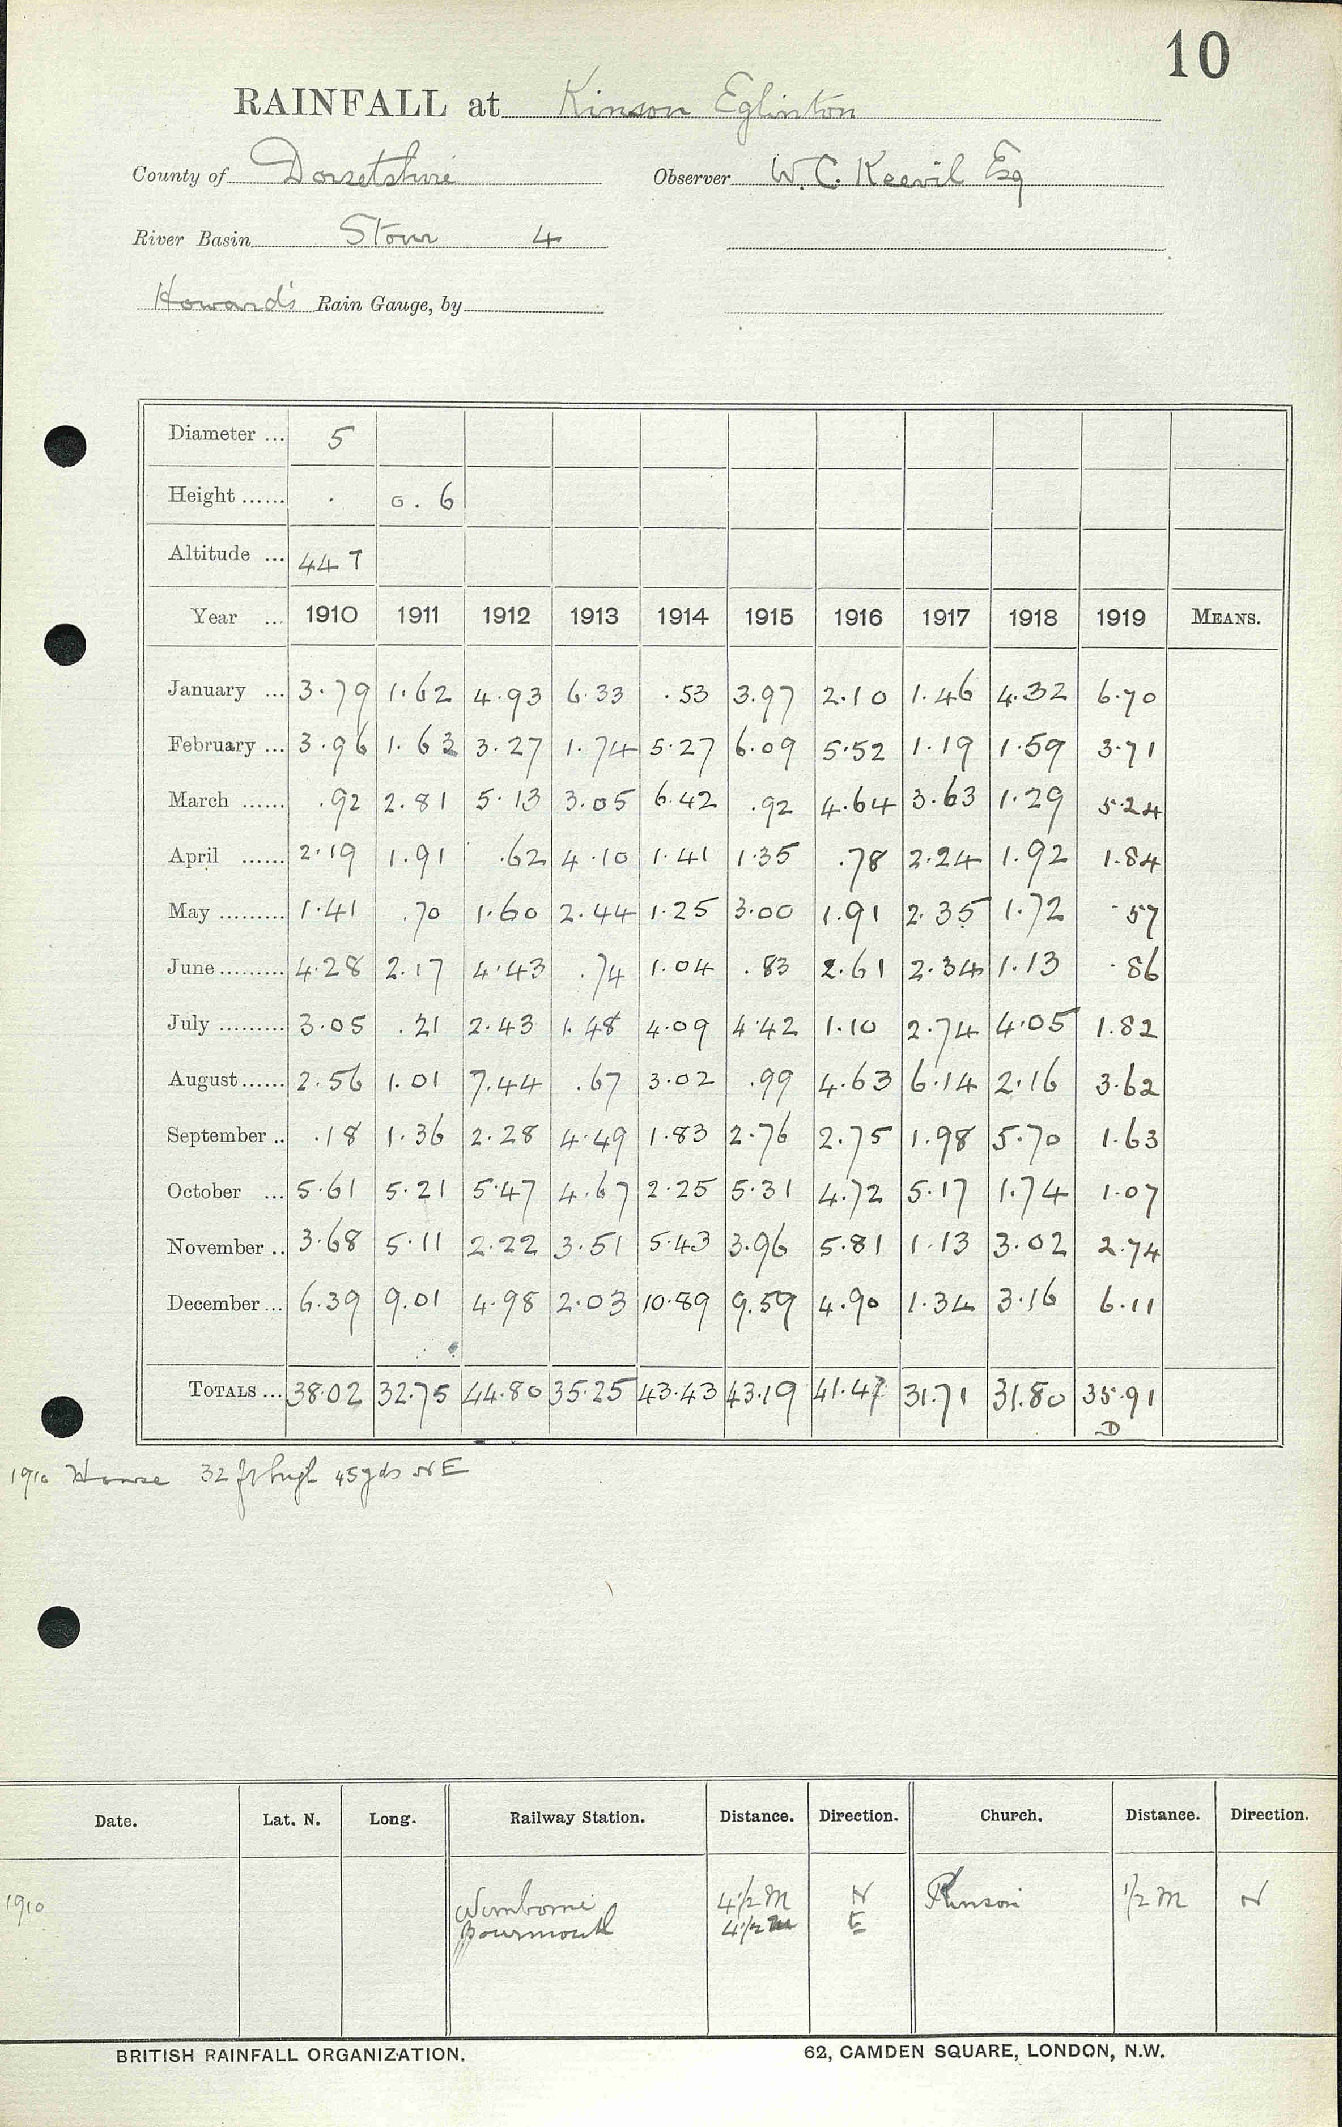 10
RAINFALL at Kinson Eglinton
County of Dorsetshire Observer W. C. Keevil Esq
River Basin Stour 4
Howard's Rain Gauge, by
Diameter ... 5
Height ...... . 0. 6
Altitude ... 44 T
Year ... 1910 1911 1912 1913 1914 1915 1916 1917 1918 1919 MEANS.
January ... 3.79 1.62 4.93 6.33 .53 3.97 2.10 1.46 4.32 6.70
February ... 3.96 1.63 3.27 1.74 5.27 6.09 5.52 1.19 1.59 3.71
March ...... .92 2.81 5.13 3.05 6.42 .92 4.64 3.63 1.29 5.24
April ...... 2.19 1.91 .62 4.10 1.41 1.35 .78 2.24 1.92 1.84
May ......... 1.41 .70 1.60 2.44 1.25 3.00 1.91 2.35 1.72 .57
June ......... 4.28 2.17 4.43 .74 1.04 .83 2.61 2.34 1.13 .86
July ......... 3.05 .21 2.43 1.48 4.09 4.42 1.10 2.74 4.05 1.82
August ...... 2.56 1.01 7.44 .67 3.02 .99 4.63 6.14 2.16 3.62
September .. .18 1.36 2.28 4.49 1.83 2.76 2.75 1.98 5.70 1.63
October ... 5.61 5.21 5.47 4.67 2.25 5.31 4.72 5.17 1.74 1.07
November .. 3.68 5.11 2.22 3.51 5.43 3.96 5.81 1.13 3.02 2.74
December ... 6.39 9.01 4.98 2.03 10.89 9.59 4.90 1.34 3.16 6.11
TOTALS ... 38.02 32.75 44.80 35.25 43.43 43.19 41.47 31.71 31.80 35.91
D
1910 House 32 ft high 45 yds NE
Date. Lat. N. Long. Railway Station. Distance. Direction. Church. Distance. Direction.
1910 Wimborne 4½ M N Kinson ½ M N
Bournmouth 4½ M E
BRITISH RAINFALL ORGANIZATION. 62, CAMDEN SQUARE, LONDON, N.W.